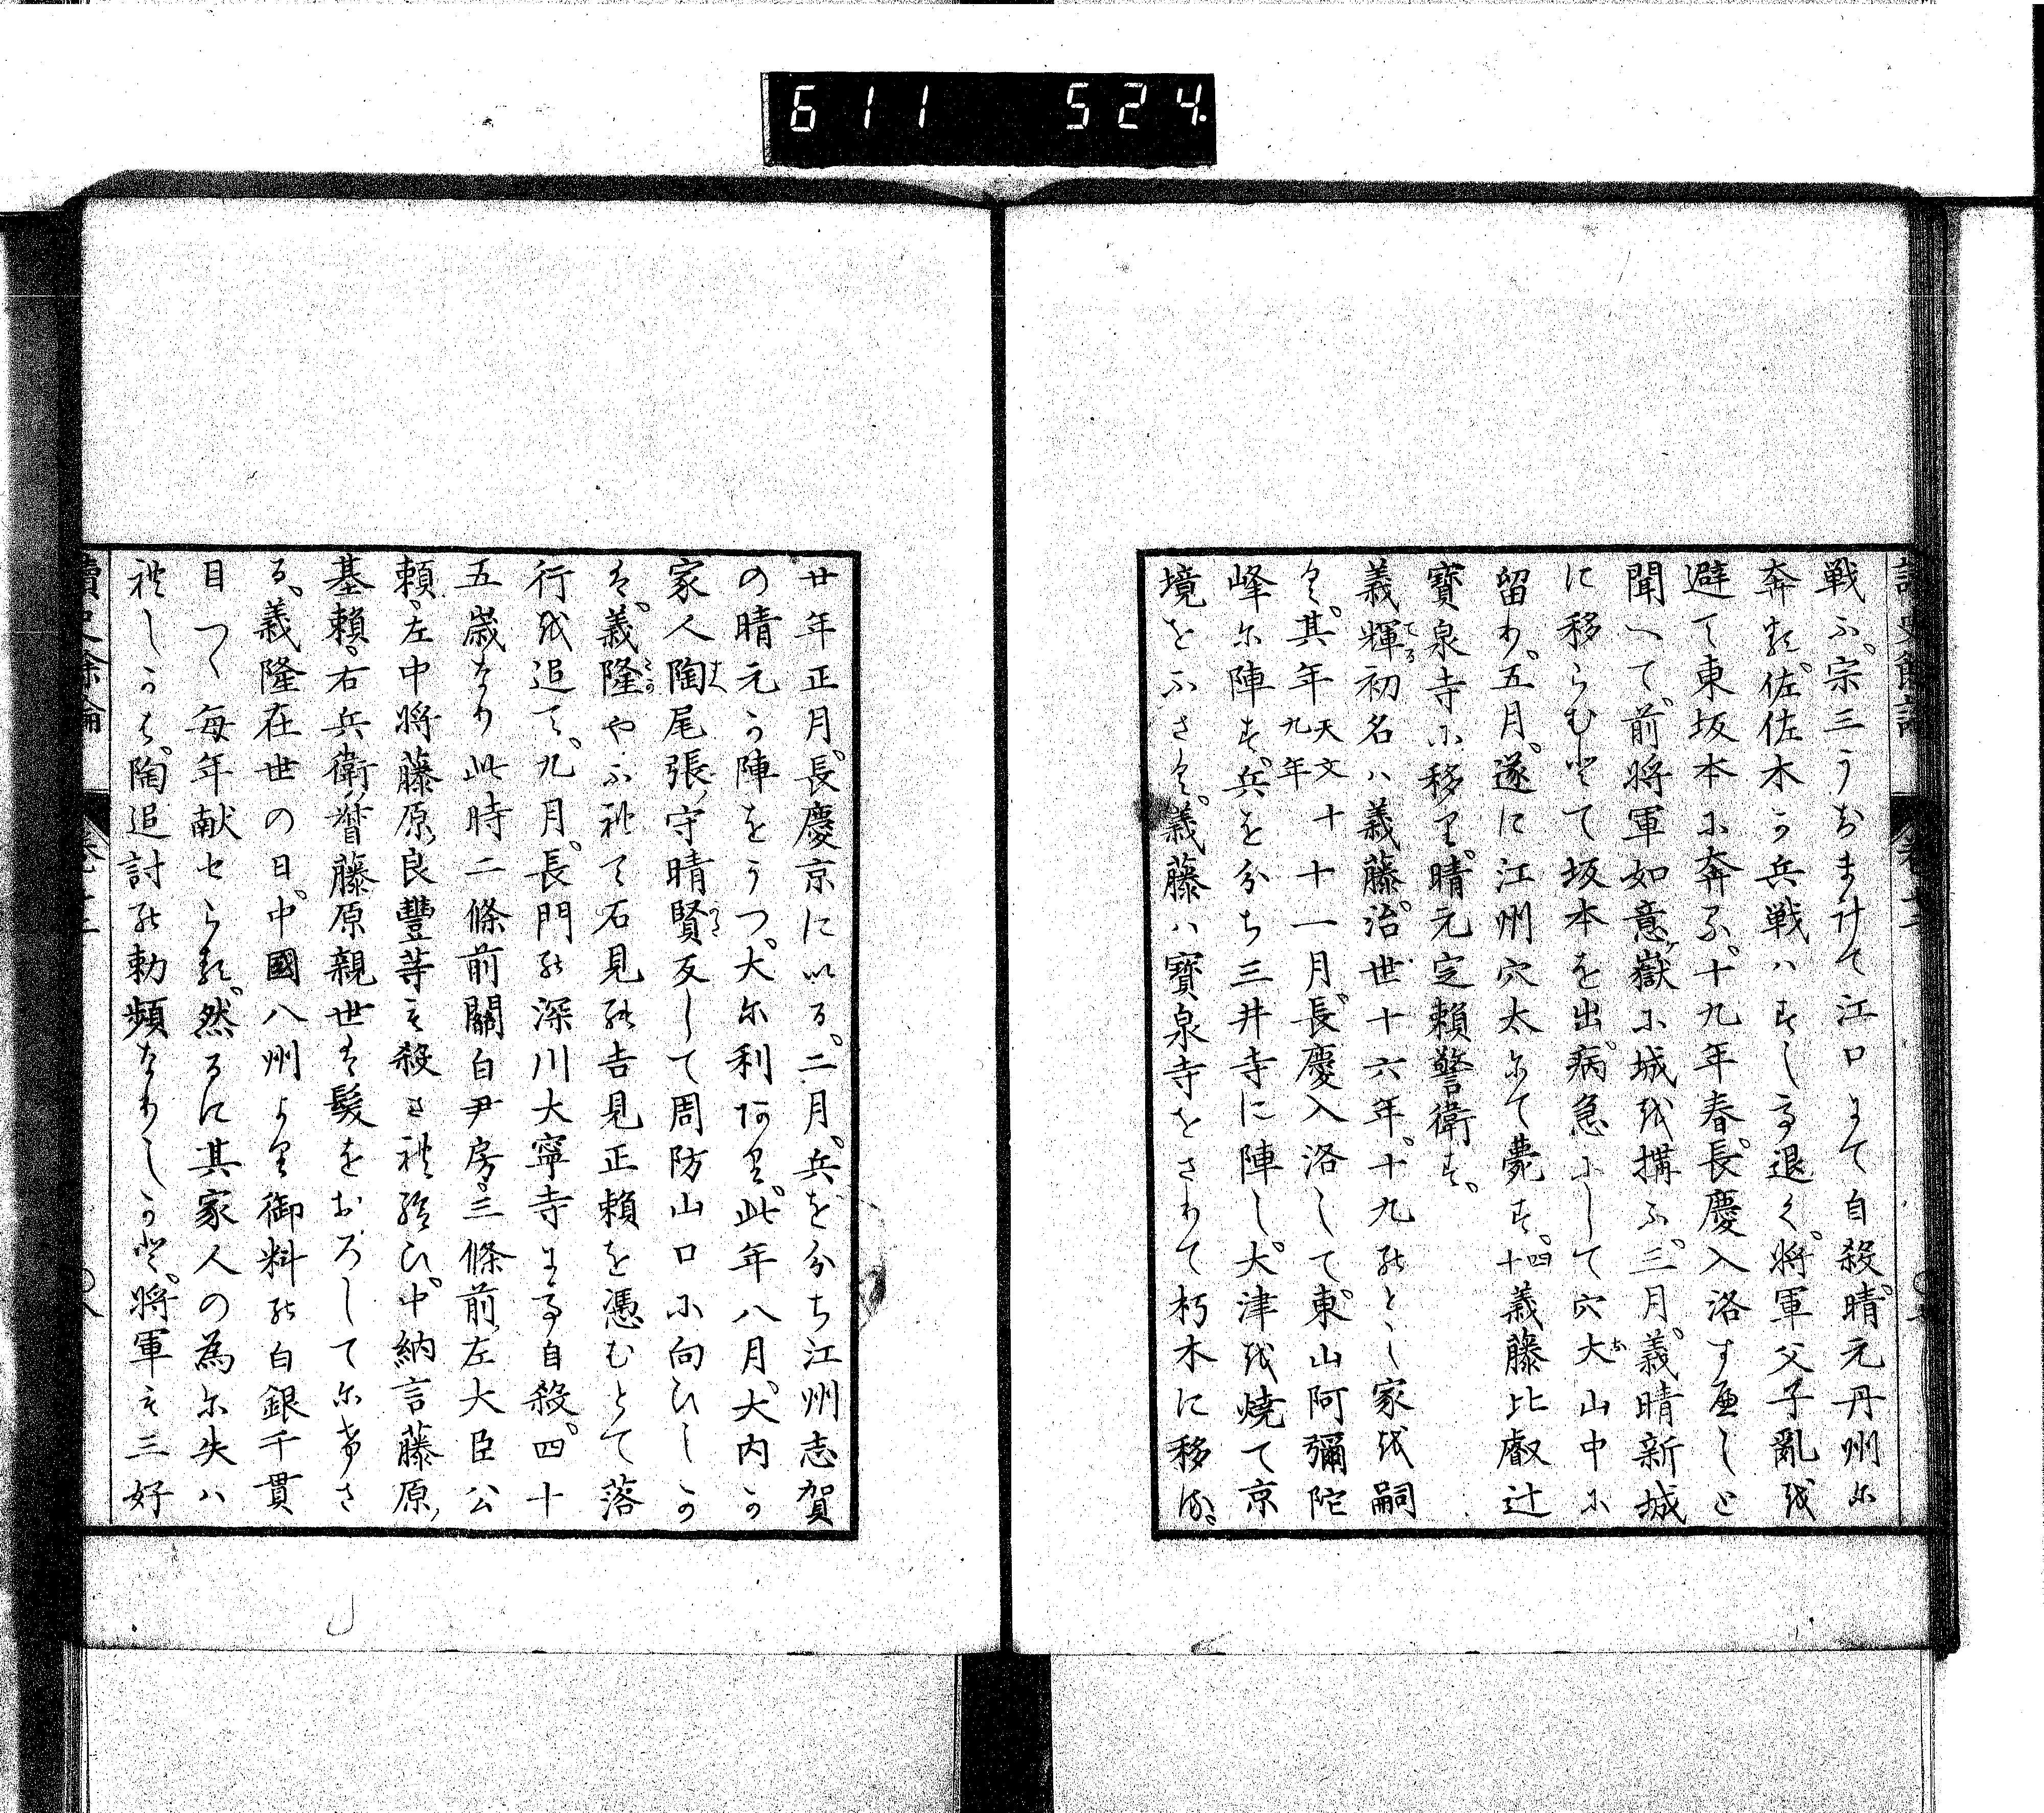 611 524
戦ふ。宗三うちまけて江口にて自殺。晴元丹州に
奔る。佐佐木か兵戦はすして退く。将軍父子亂を
避て東坂本に奔る。十九年春。長慶入洛すへしと
聞へて。前将軍如意嶽に城を搆ふ。三月。義晴新城
に移らむとて坂本を出。病急にして穴大山中に
留り。五月。遂に江州穴太にて薨す。四十義藤比叡辻
寶泉寺に移り。晴元定頼警衛す。
義輝初名ハ義藤。治世十六年。十九のとし家を嗣
く。其年天文十九年十一月。長慶入洛して。東山阿彌陀
峰に陣す。兵を分ち三井寺に陣し。大津を焼て京
境をふさく。義藤ハ寶泉寺をさりて朽木に移る。
廿年正月。長慶京にいる。二月。兵を分ち江州志賀
の晴元か陣をうつ。大に利あり。此年八月。大内か
家人陶尾張守晴賢反して周防山口に向ひしか
は。義隆やふれて石見の吉見正頼を憑むとて落
行を追て。九月。長門の深川大寧寺にて自殺。四十
五歳なり此時二條前關白尹房。三條前左大臣公
頼。左中将藤原良豐等も殺され給ひ。中納言藤原
基頼。右兵衛督藤原親世は髪をおろしてにけさ
る。義隆在世の日。中國八州より御料の白銀千貫
目つゝ毎年献せらる。然るに其家人の為に失ハ
れしかは。陶追討の勅頻なりしかと。将軍も三好
讀史餘論 卷十二 〇八